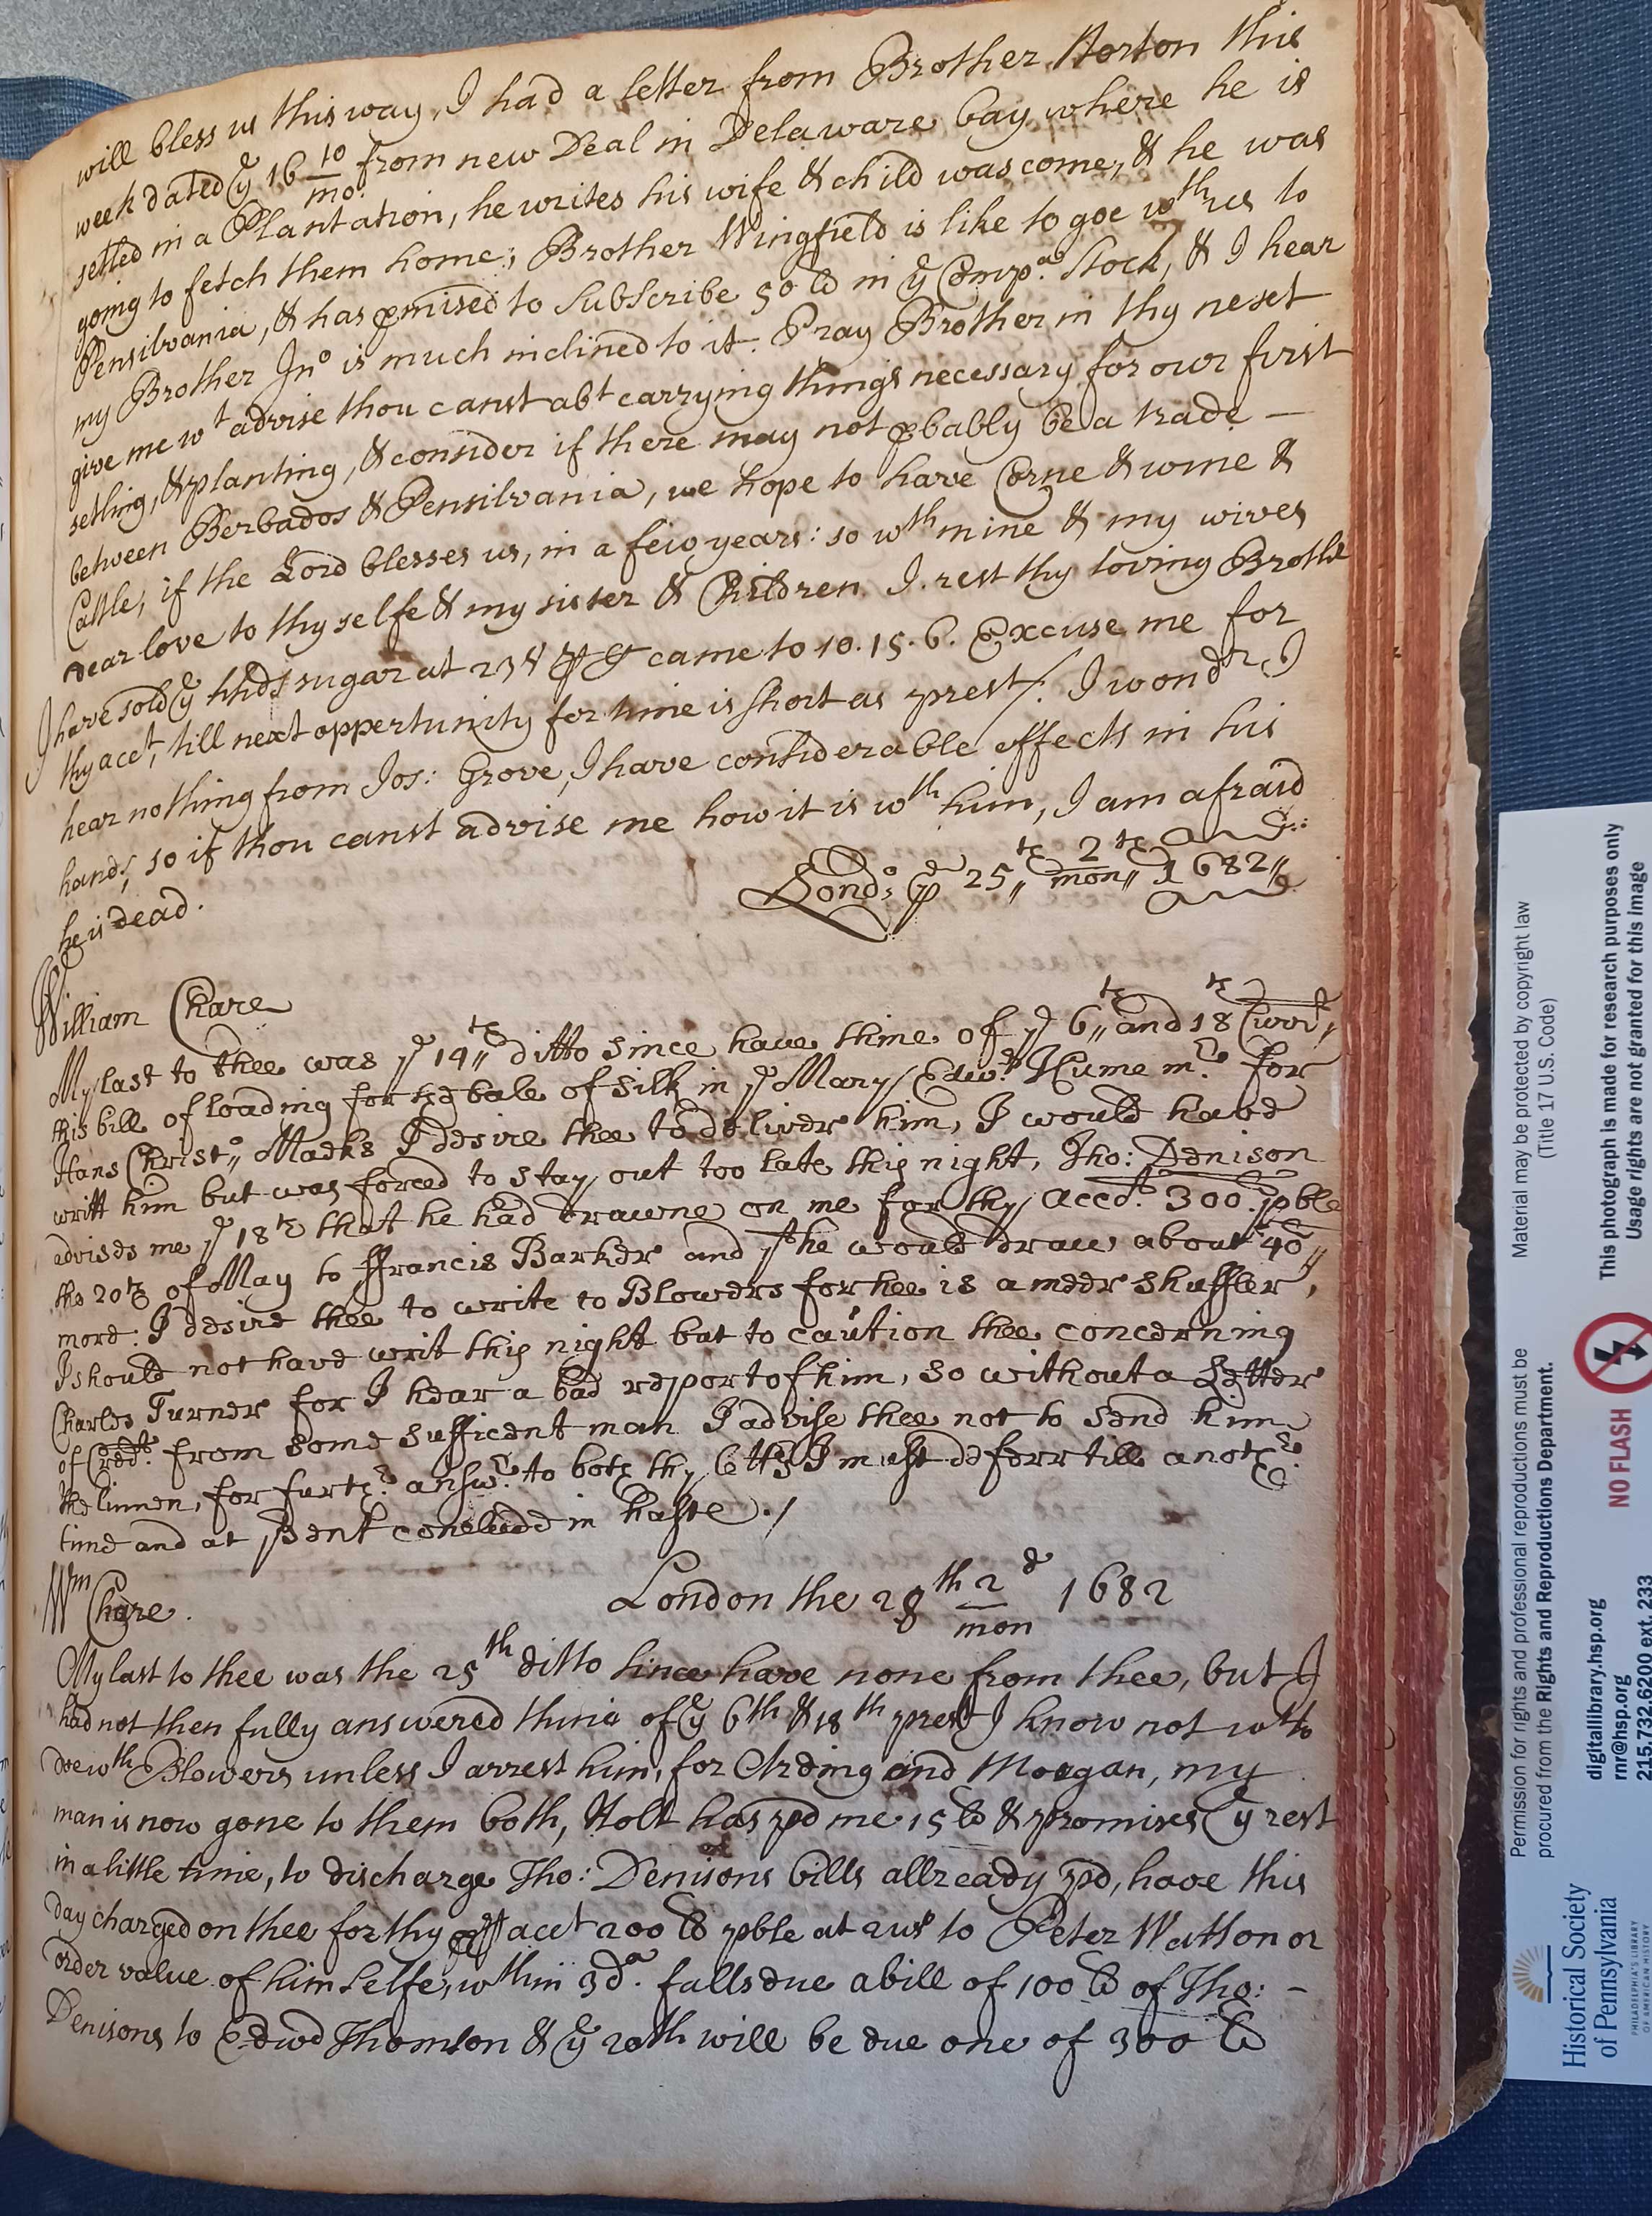 will bless us this way, I had a letter from Brother Norton this
week dated ye 16 10/mo. from new Deal in Delaware bay where he is
setled in a Plantation, he writes his wife & child was come, & he was
going to fetch them home; Brother Wingfield is like to goe wth us to
Pensilvania, & has pmised to subscribe 50 lb in ye Compa. Stock, & I hear
my Brother Jno is much inclined to it. Pray Brother in thy next
give me wt advise thou canst abt carrying things necessary for our first
setling, & planting, & consider if there may not pbably be a trade —
between Berbados & Pensilvania, we hope to have Corne & wine &
Cattle, if the Lord blesses us, in a few years: so wth mine & my wives
dear love to thy selfe & my sister & Children I rest thy loving Brothr
I have sold ye hhds sugar at 23s came to 10.15.6. Excuse me for
thy acct, till next oppertunity for time is short as prest/. I wondr I
hear nothing from Jos: Grove, I have considerable effects in his
hands, so if thou canst advise me how it is wth him, I am afraid
he is dead.
Londo: ye 25th 2/mon 1682
William Chare
My last to thee was ye 14th ditto since have thine of ye 6th and 18th Curr.t,
this bill of loading for bale of silk in ye Mary Edwd. Hume mr. for
Hans Christo, Madks I desire thee to deliver him, I would have
writt him but was forced to stay out too late this night, Tho: Denison
advises me ye 18th that he had drawne on me for thy accot. 300. pble
the 20th of May to ffrancis Barker and yt he would draw about 40
more: I desire thee to write to Blowers for hee is a meer shuffler,
I should not have writ this night but to caution thee concerning
Charles Turner for I hear a bad report of him, so without a Letter
of Credt. from some sufficent man I advise thee not to send him
the linnen, for furthr. answr. to both thy letts I must deferr till anothr.
time and at psent conclude in haste ./
London the 28th 2d/mon 1682
Wm Chare.
My last to thee was the 25th ditto since have none from thee, but I
had not then fully answered thine of ye 6th & 18th prest I know not wt to
doe wth Blowers unless I arrest him, for Arding and Morgan, my
man is now gone to them both, Holt has pd me 15 lb & promises ye rest
in a little time, to discharge Tho: Denisons bills allready pd, have this
day charged on thee for thy acct 200 lb pble at 2us to Peter Watson or
order value of himselfe, wthin 3da. falls due a bill of 100 lb of Tho: -
Denisons to Edwd Thomson & ye 20th will be due one of 300 lb
Material may be protected by copyright law
(Title 17 U.S. Code)
This photograph is made for research purposes only
Usage rights are not granted for this image
Permission for rights and professional reproductions must be
procured from the Rights and Reproductions Department.
NO FLASH
digitallibrary.hsp.org
rnr@hsp.org
215.732.6200 ext.233
Historical Society
of Pennsylvania
PHILADELPHIA'S LIBRARY
OF AMERICAN HISTORY